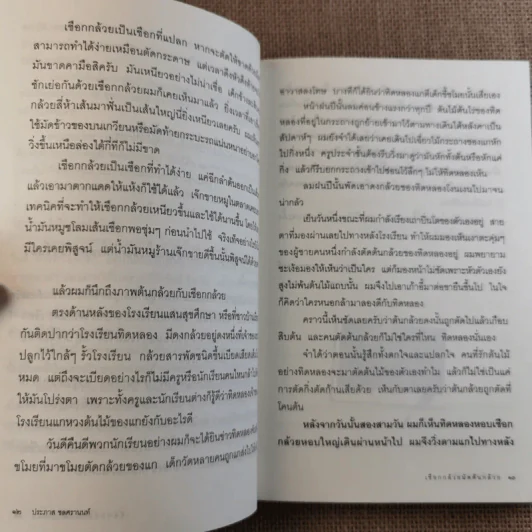 เชือกกล้วยเป็นเชือกที่แปลก หากจะตัดให้ขาด
สามารถทำได้ง่ายเหมือนตัดกระดาษ แต่เวลาดึง
มันขาดคามือสิครับ มันเหนียวอย่างไม่น่าเชื่อ เด็กช้าง
ชักเย่อกันด้วยเชือกกล้วยผมก็เคยเห็นมาแล้ว ยิ่งเวลา
กล้วยสี่ห้าเส้นมาฟั่นเป็นเส้นใหญ่นี่ยิ่งเหนียวเลยครับ
ใช้มัดข้าวของบนเกวียนหรือมัดท้ายกระบะรถ
วิ่งขึ้นเหนือล่องใต้ก็ที่ก็ไม่มีขาด
เชือกกล้วยเป็นเชือกที่ทำได้ง่าย แค่ฉีกลำต้น
แล้วเอามาตากแดดให้แห้งก็ใช้ได้แล้ว เจ๊กขายหมูในตลาด
เทคนิคที่จะทำให้เชือกกล้วยเหนียวขึ้นและใช้ได้นานขึ้น
น้ำมันหมูชโลมเส้นเชือกพอชุ่มๆ ก่อนนำไปใช้ จริงเท็จ
มีใครเคยพิสูจน์ แต่น้ำมันหมูร้านเจ๊กขายดีขึ้นนั้น
แล้วผมก็นึกถึงภาพต้นกล้วยกับเชือกกล้วย
ตรงด้านหลังของโรงเรียนแสนสุขศึกษา หรือที่ชาวบ้าน
กันติดปากว่าโรงเรียนทิดหลอง มีดงกล้วยอยู่ดงหนึ่งที่
ปลูกไว้ใกล้ๆ รั้วโรงเรียน กล้วยสารพัดชนิดขึ้นเบียดเสียด
หมด แต่ถึงจะเบียดอย่างไรก็ไม่มีครูหรือนักเรียนคนไหน
ให้มันโปร่งตา เพราะทั้งครูและนักเรียนต่างก็รู้ดีว่าทิดหลอง
โรงเรียนแกหวงต้นไม้ของแกยังกับอะไรดี
วันดีคืนดีพวกนักเรียนอย่างผมก็จะได้ยินข่าวทิดหลอง
ขโมยที่มาขโมยตัดกล้วยของแก เด็กวัดหลายคนถูก
๑๒ ประภาส ชลศรานนท์
อาวาสลงโทษ บางทีก็ได้ยินว่าทิดหลองแกตีเด็กขี้ขโมยนั้นเสียเอง
หน้าฝนปีนั้นลมค่อนข้างแรงกว่าทุกปี ต้นไม้ต้นไร่ของทิด
หลองที่อยู่ในกระถางถูกย้ายเข้ามาไว้ตามทางเดินใต้หลังคาเป็น
สัปดาห์ๆ ผมยังจำได้เลยว่าเคยเดินไปเจี๊ยวไม้กระถางของแกหัก
ไปกิ่งหนึ่ง ครูประจำชั้นต้องรีบวิ่งมาดูว่ามันหักทั้งต้นหรือหักแค่
กิ่ง แล้วก็รีบยกกระถางข้างไปซ่อนไว้ลึกๆ ไม่ให้ทิดหลองเห็น
ลมฝนปีนั้นพัดเอาดงกล้วยของทิดหลองโงนเงนไปมาจน
น่ากลัว
เย็นวันหนึ่งขณะที่ผมกำลังเรียงเถาปิ่นโตของตัวเองอยู่ สาย
ตาที่มองผ่านเลยไปทางหลังโรงเรียน ทำให้ผมมองเห็นเงาตะคุ่มๆ
ของผู้ชายคนหนึ่งกำลังตัดต้นกล้วยของทิดหลองอยู่ ผมพยายาม
ชะเง้อมองให้เห็นว่าเป็นใคร แต่ก็มองหน้าไม่ชัดเพราะหัวตัวเองยัง
สูงไม่พ้นต้นไม้แถบนั้น ผมจึงไปเอาเก้าอี้มาต่อขายืนขึ้นไป ในใจ
ก็คิดว่าใครหนอกล้ามาลองดีกับทิดหลอง
คราวนี้เห็นชัดเลยครับว่าต้นกล้วยดงนั้นถูกตัดไปแล้วเกือบ
สิบต้น และคนตัดกล้วยก็ไม่ใช่ใครที่ไหน ทิดหลองนั่นเอง
จำได้ว่าตอนนั้นรู้สึกทั้งตกใจและแปลกใจ คนที่รักต้นไม้
อย่างทิดหลองจะมาตัดต้นไม้ของตัวเองทำไม แล้วก็ไม่ใช่เป็นแค่
การตัดกิ่งตัดก้านเสียด้วย เห็นกับตาเลยครับว่าต้นกล้วยถูกตัดที่
โคนต้น
หลังจากวันนั้นสองสามวัน ผมก็เห็นทิดหลองหอบเชือก
กล้วยหอบใหญ่เดินผ่านหน้าไป ผมจึงวิ่งตามแกไปทางหลัง